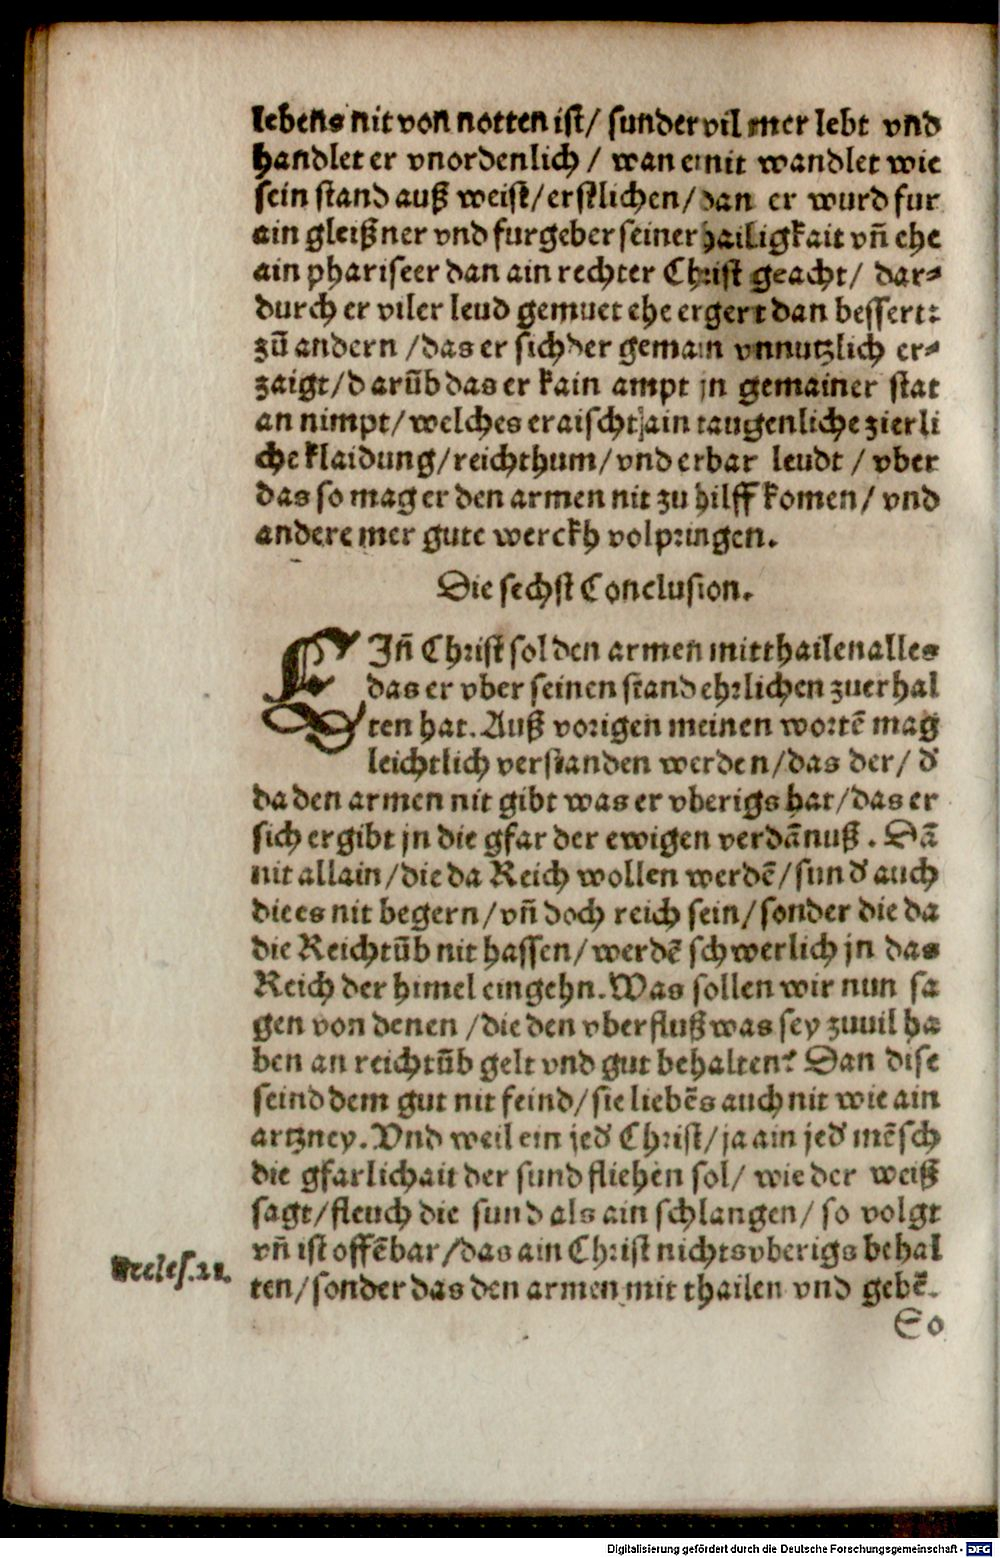 lebens nit von notten ist/ sunder vil mer lebt vnd
handlet er vnordenlich / wan er nit wandlet wie
sein stand auß weist/ erstlichen/ dan er wurd fur
ain gleißner vnd furgeber seiner hailigkait vñ ehe
ain phariseer dan ain rechter Christ geacht/ dar⸗
durch er viler leud gemuet ehe ergert dan bessert:
zů andern /das er sich der gemain vnnutzlich er⸗
zaigt/ darůb das er kain ampt jn gemainer stat
an nimpt/ welches eraischt ain taugenliche zierli
che klaidung/ reichthum/ vnd erbar leudt / vber
das so mag er den armen nit zu hilff komen/ vnd
andere mer gute werckh volpringen.
Die sechst Conclusion.
EJñ Christ sol den armen mitthailen alles
das er vber seinen stand ehrlichen zuerhal
ten hat. Auß vorigen meinen wortẽ mag
leichtlich verstanden werden/ das der/ d'
da den armen nit gibt was er vberigs hat/ das er
sich ergibt jn die gfar der ewigen verdãnuß. Dã
nit allain/ die da Reich wollen werdẽ/ sund' auch
die es nit begern/ vñ doch reich sein/ sonder die da
die Reichtůb nit hassen/ werdẽ schwerlich jn das
Reich der himel eingehn. Was sollen wir nun sa
gen von denen /die den vberfluß was sey zuuil ha
ben an reichtůb gelt vnd gut behalten? Dan dise
seind dem gut nit feind/ sie liebẽs auch nit wie ain
artzney. Vnd weil ein jed' Christ/ ja ain jed' mẽsch
die gfarlichait der sund fliehen sol/ wie der weiß
sagt/ fleuch die sund als ain schlangen/ so volgt
vñ ist offẽbar/ das ain Christ nichts vberigs behal
Eccles. 21.
ten/ sonder das den armen mit thailen vnd gebẽ.
So
Digitalisierung gefördert durch die Deutsche Forschungsgemeinschaft - DFG